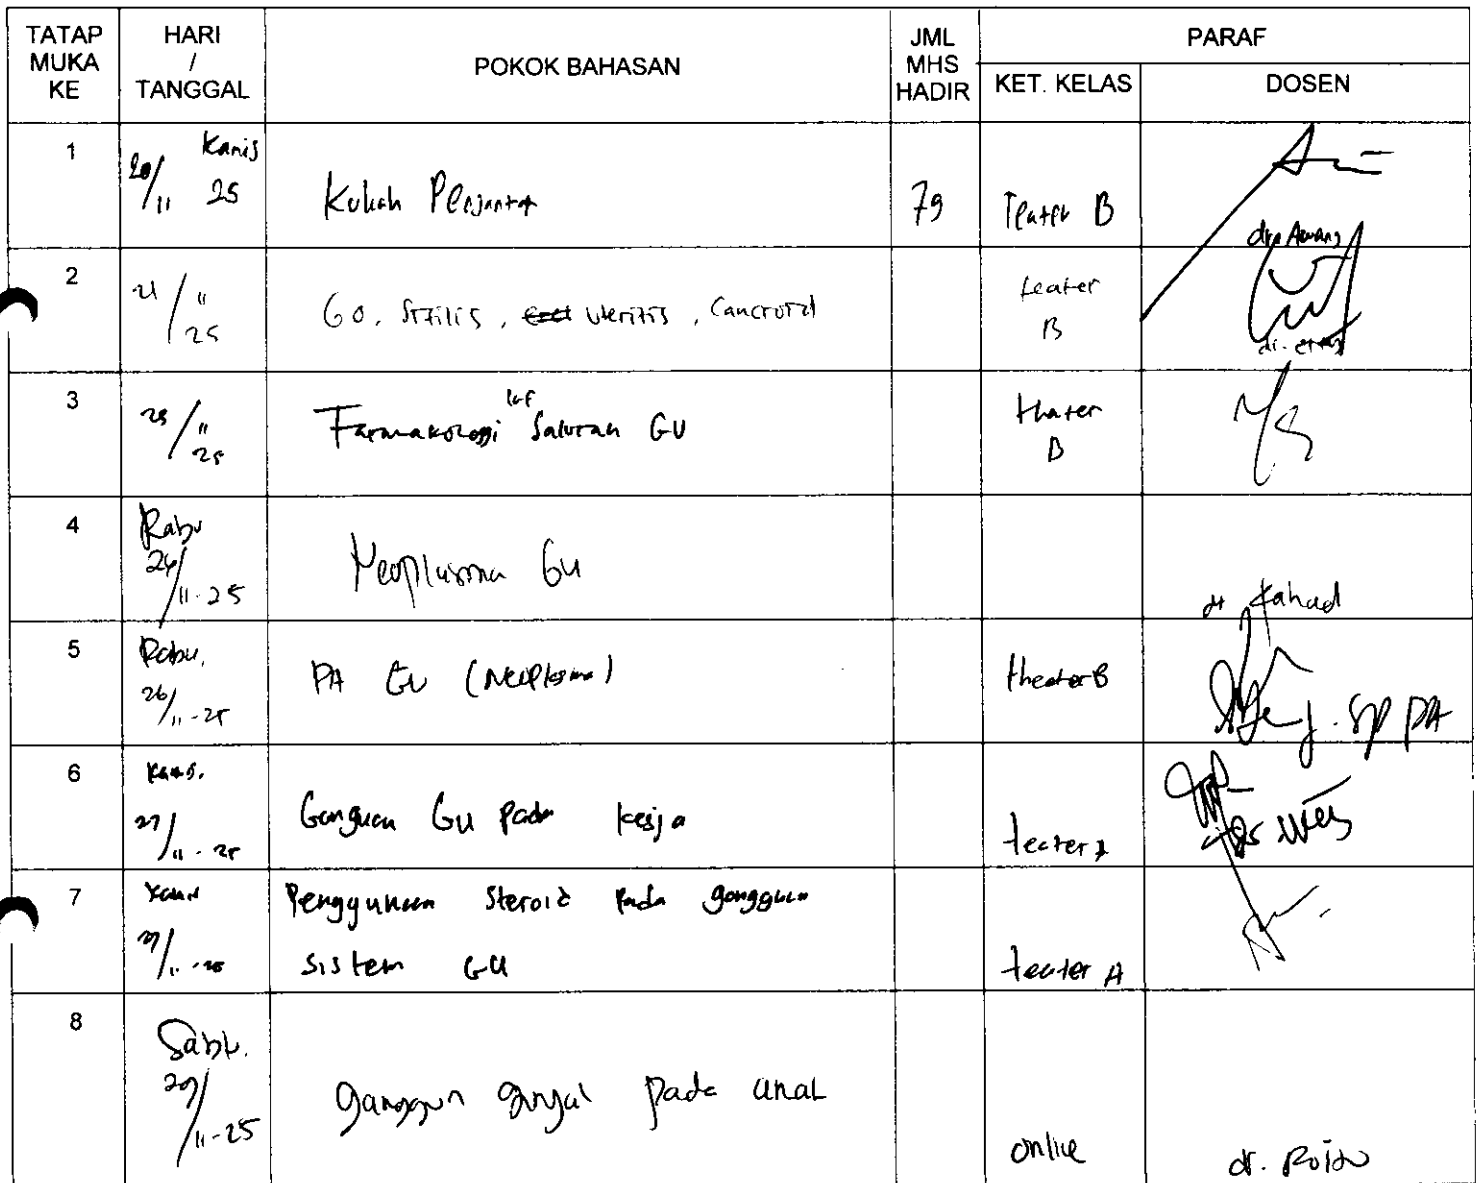 TATAP MUKA KE HARI / TANGGAL POKOK BAHASAN JML MHS HADIR PARAF
KET. KELAS DOSEN
1 Kamis 20/11 25 Kuliah Pengantar 79 Teater B
dr. Awang
2 21/11 25 GO, Sifilis, Uretritis, Cancroid teater B
3 25/11 25 Farmakologi Inf Saluran GU theater B
4 Rabu 26/11-25 Neoplasma GU
dr Fahad
5 Rabu, 26/11-25 PA GU (Neoplasma) theater B
Sp PA
6 Kamis, 27/11-25 Gangguan GU pada kerja teater A
7 Kamis 27/11-25 Penggunaan Steroid pada gangguan
sistem GU teater A
8 Sabtu, 29/11-25 gangguan ginjal pada anak online dr.